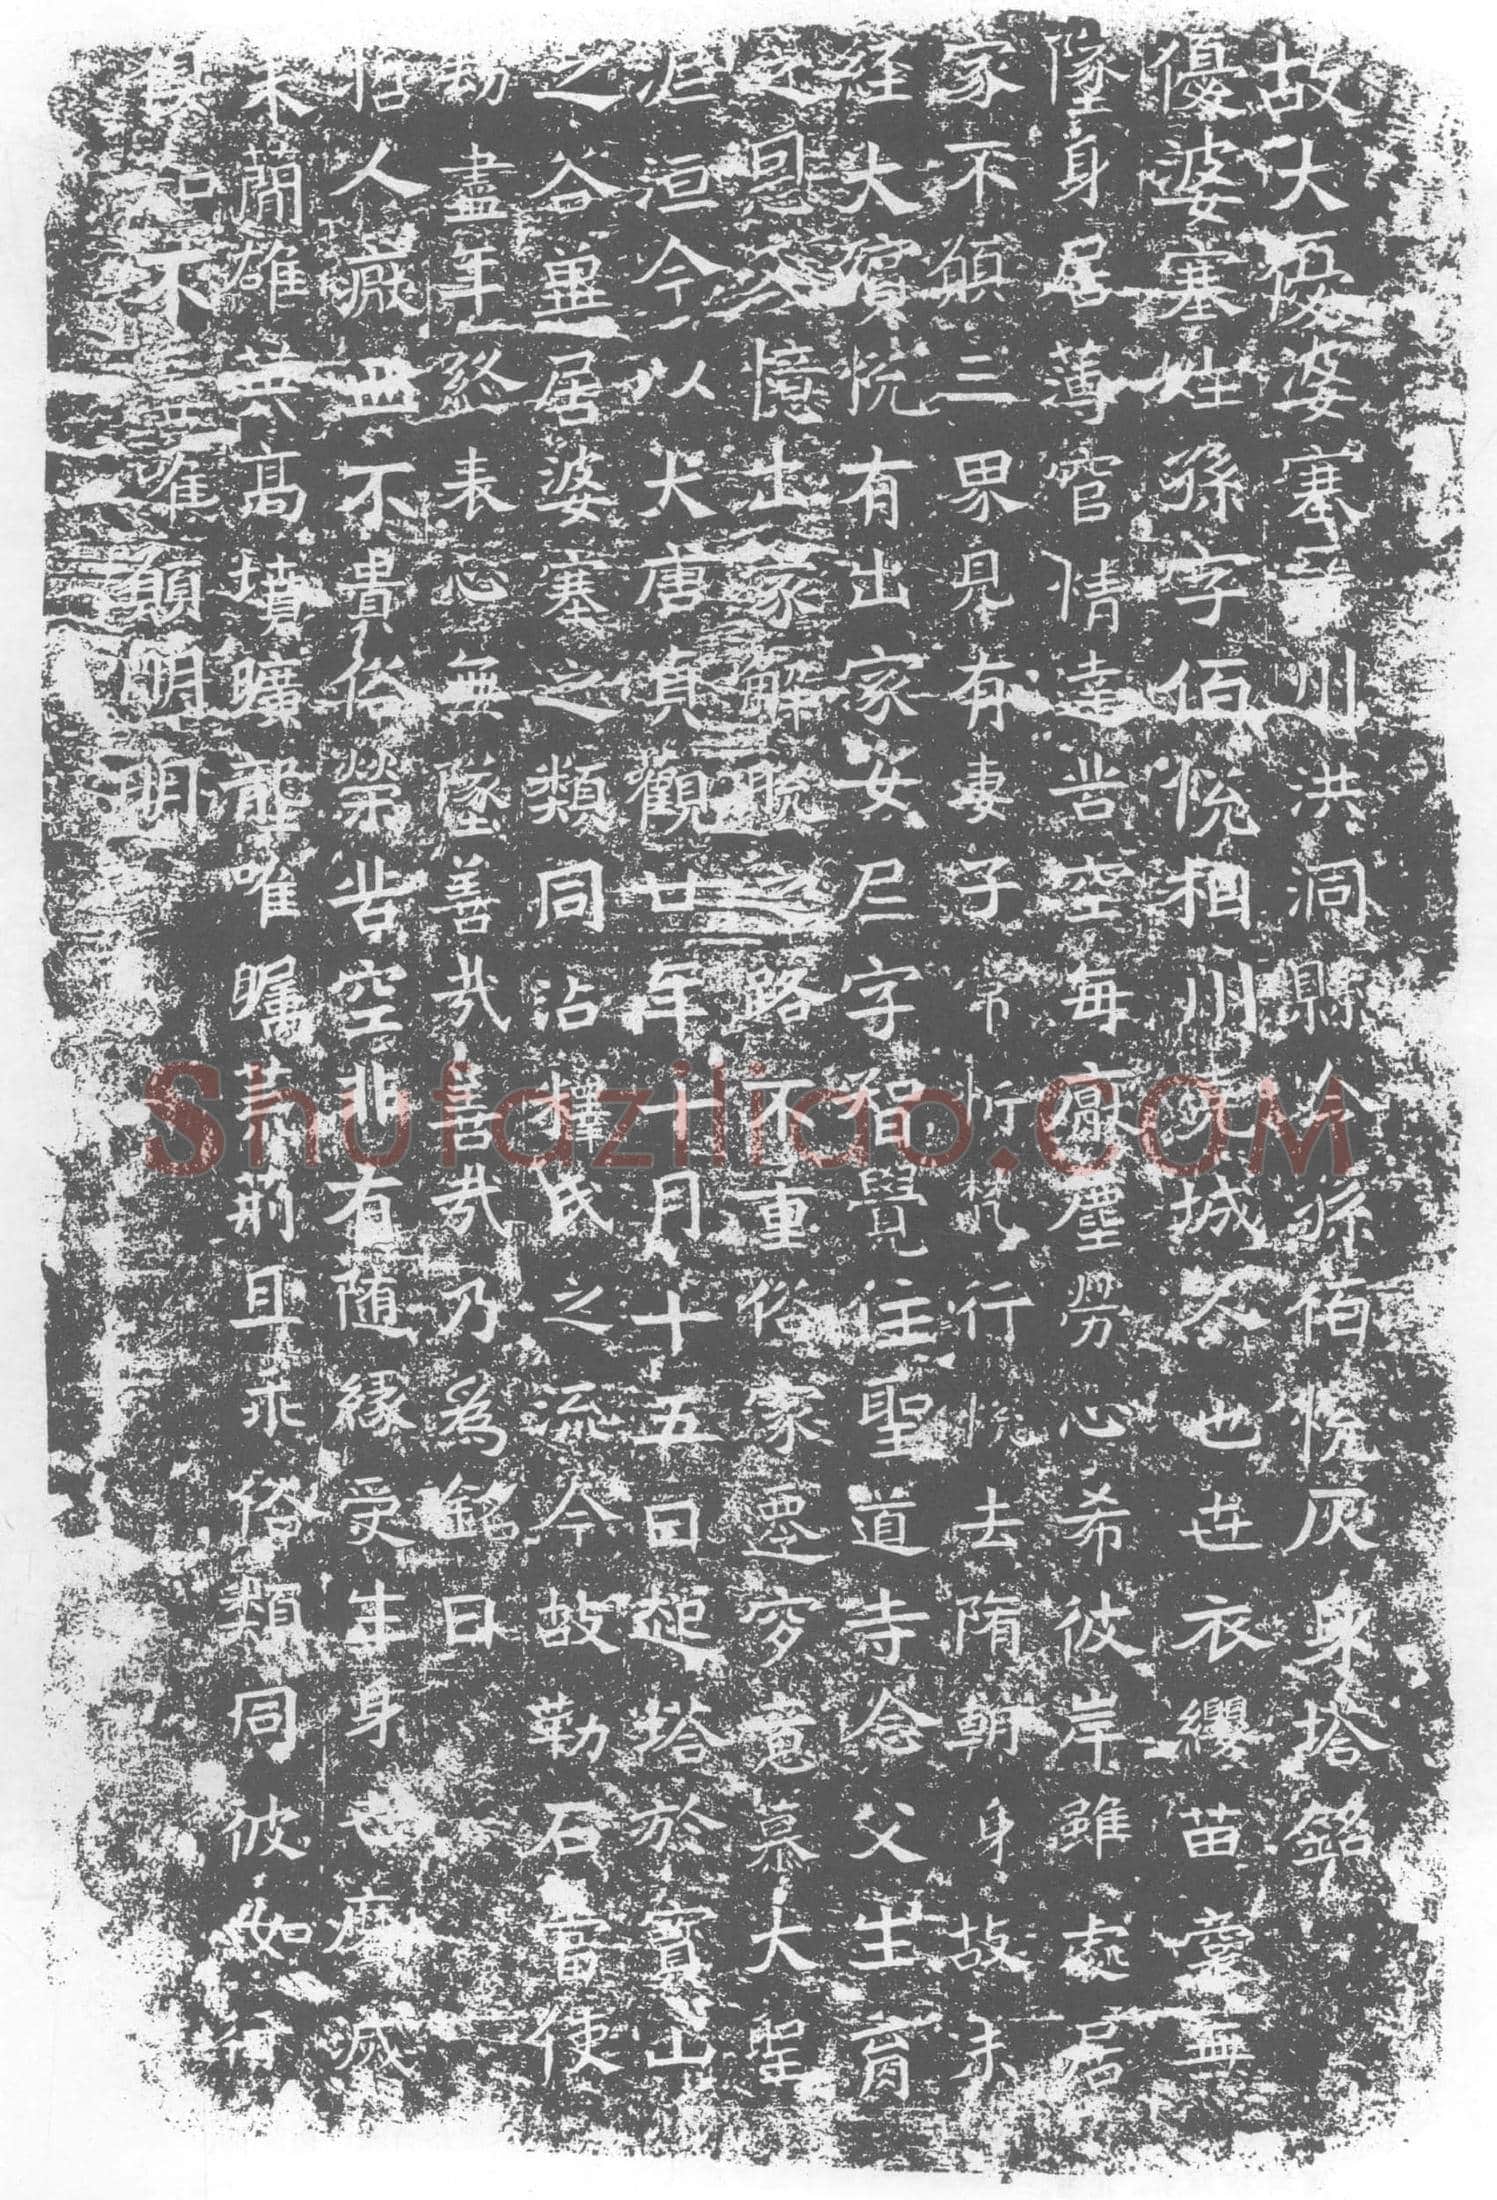 故大優婆塞川洪洞縣令孫佰悅灰身塔銘
優婆塞姓孫字佰悅相州堯城人也世衣纓苗裔無
墜身居薄官情達苦空每厭塵勞心希彼岸雖處居
家不願三界見有妻子常忻梵行悅去隋朝身故未
経大殯悅有出家女尼字智覺住聖道寺念父生育
之恩又憶出家解脫之路不重俗家遷穸意慕大聖
涅洹今以大唐貞觀廿年十月十五日起塔於寶山
之谷並居婆塞之類同沾釋氏之流今故勒石當使
劫盡年終表心無墜善哉善哉乃為銘曰
哲人厭世不貴俗榮苦空非有随緣受生身世磨滅
未簡雄英高墳曠壟唯矚荒荊且乖俗類同彼如行
後知不 唯願明明
Shufaziliao.COM